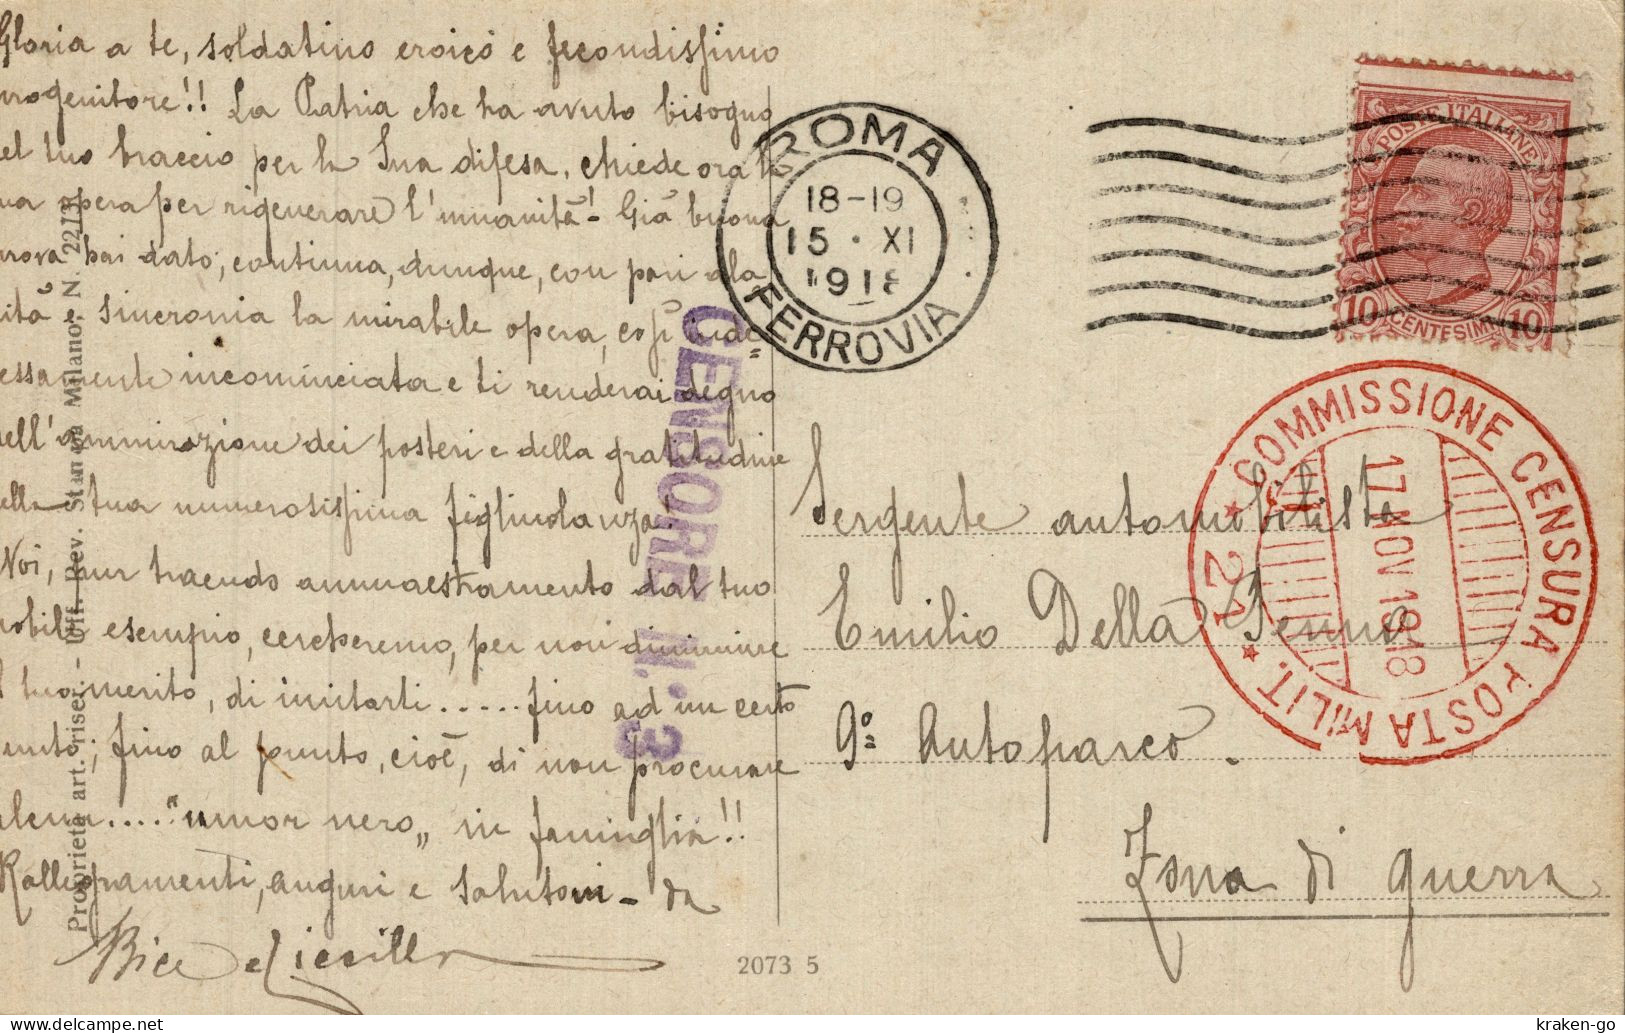 Gloria a te, soldatino eroico e fecondissimo
progenitore!! La Patria che ha avuto bisogno
del tuo braccio per la Sua difesa, chiede ora la
tua opera per rigenerare l'umanità! Già buona
prova hai dato; continua, dunque, con pari ala-
cità e sincronia la mirabile opera, così inde=
fessamente incominciata e ti renderai degno
dell'ammirazione dei posteri e della gratitudine
della tua numerosissima figliuolanza!
Noi, pur traendo ammaestramento dal tuo
nobile esempio, cercheremo, per non diminuire
il tuo merito, di imitarti..... fino ad un certo
punto; fino al punto, cioè, di non procurare
alcun.... "umor nero„ in famiglia!!
Rallegramenti, auguri e salutoni - da
Bice e
Proprietà art. riser. - Uff. Rev. Stampa Milano, N. 22/3
2073 5
CENSORE N. 3
ROMA
18-19
15 · XI
1918
FERROVIA
POSTE ITALIANE
10 CENTESIMI 10
COMMISSIONE CENSURA POSTA MILIT.
17 NOV 1918
21
Sergente automobilista
Emilio Della Penna
9º Autoparco.
Zona di guerra
kraken-go